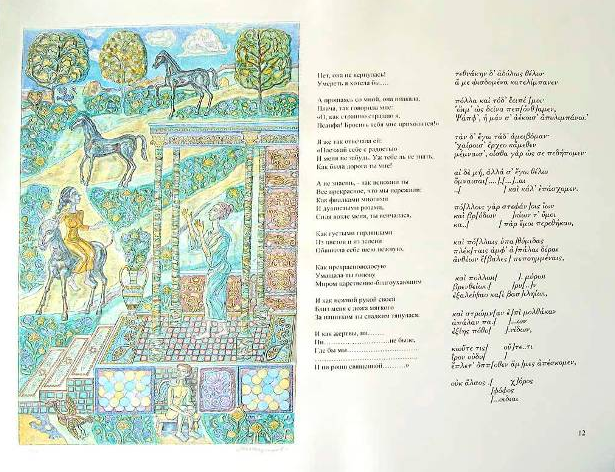 Нет, она не вернулась!
Умереть я хотела бы.....
А прощаясь со мной, она плакала,
Плача, так говорила мне:
«О, как страшно страдаю я,
Псапфа! Бросить тебя мне приходится!»
Я же так отвечала ей:
«Поезжай себе с радостью
И меня не забудь. Уж тебе ль не знать,
Как была дорога ты мне!
А не знаешь, - так вспомни ты
Все прекрасное, что мы пережили:
Как фиалками многими
И душистыми розами,
Сидя возле меня, ты венчалась,
Как густыми гирляндами
Из цветов и из зелени
Обвивала себе шею нежную.
Как прекрасноволосую
Умащала ты голову
Миром царственно-благоухающим
И как нежной рукой своей
Близ меня с ложа мягкого
За напитком ты сладким тянулась.
И как жертвы, мы
Ни не было,
Где бы мы
И ни рощи священной..........»
τεθνάκην δ' ἀδόλως θέλω·
ἄ με ψισδομένα κατελίμπανεν
πόλλα καὶ τόδ' ἔειπέ [μοι·
ὤιμ' ὠς δεῖνα πεπ[όνθ]αμεν,
Ψάπφ', ἦ μάν σ' ἀέκοισ' ἀπυλιμπάνω.
τὰν δ' ἔγω τάδ' ἀμειβόμαν·
χαίροισ' ἔρχεο κἄμεθεν
μέμναισ', οἶσθα γὰρ ὤς σε πεδήπομεν·
αἰ δὲ μή, ἀλλά σ' ἔγω θέλω
ὄμναισαι[...]
..[ ] καὶ κάλ' ἐπάσχομεν.
πό[λλοις γὰρ στεφάν]οις ἴων
καὶ βρ[όδων ]κίων τ' ὔμοι
κα..[ ] πὰρ ἔμοι περεθήκαο,
καὶ πό[λλαις ὐπα]θύμιδας
πλέκ[ταις ἀμφ' ἀ]πάλαι δέραι
ἀνθέων ἔ[βαλες] πεποημμέναις,
καὶ πολλωι[ ] μύρωι
βρενθείωι.[ ]ρυ[..]ν
ἐξαλείψαο κα[ὶ βασ]ιληίωι,
καὶ στρώμν[αν ἐ]πὶ μολθάκαν
ἀπάλαν πα.[ ]...ων
ἐξίης πόθο[ ].νίδων,
κωὔτε τις[ οὔ]τε..τι
ἶρον οὐδυ[ ]
ἔπλετ' ὄππ[οθεν ἄμ]μες ἀπέσκομεν,
οὐκ ἄλσος .[ χ]όρος
]ψόφος
]...οιδιαι
12